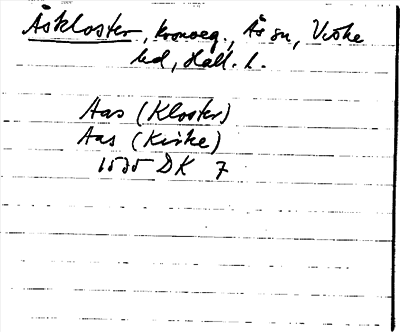 Åskloster, kronoeg., Ås sn, Viske
hd, Hall. l.
Aas (Kloster)
Aas (Kirke)
DK 7